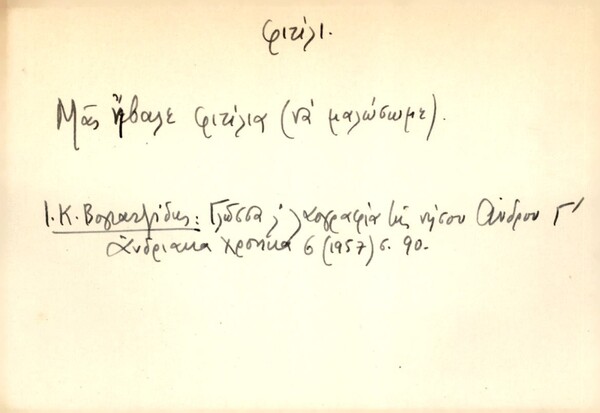 φιτίλι.
Μᾶς ἤβαλε φιτίλια (νὰ μαλώσωμε).
Ι. Κ. Βογιατζίδης: Γλῶσσα & λαογραφία τῆς νήσου Ἄνδρου Γ'
Ἀνδριακὰ Χρονικὰ 6 (1957) σ. 90.